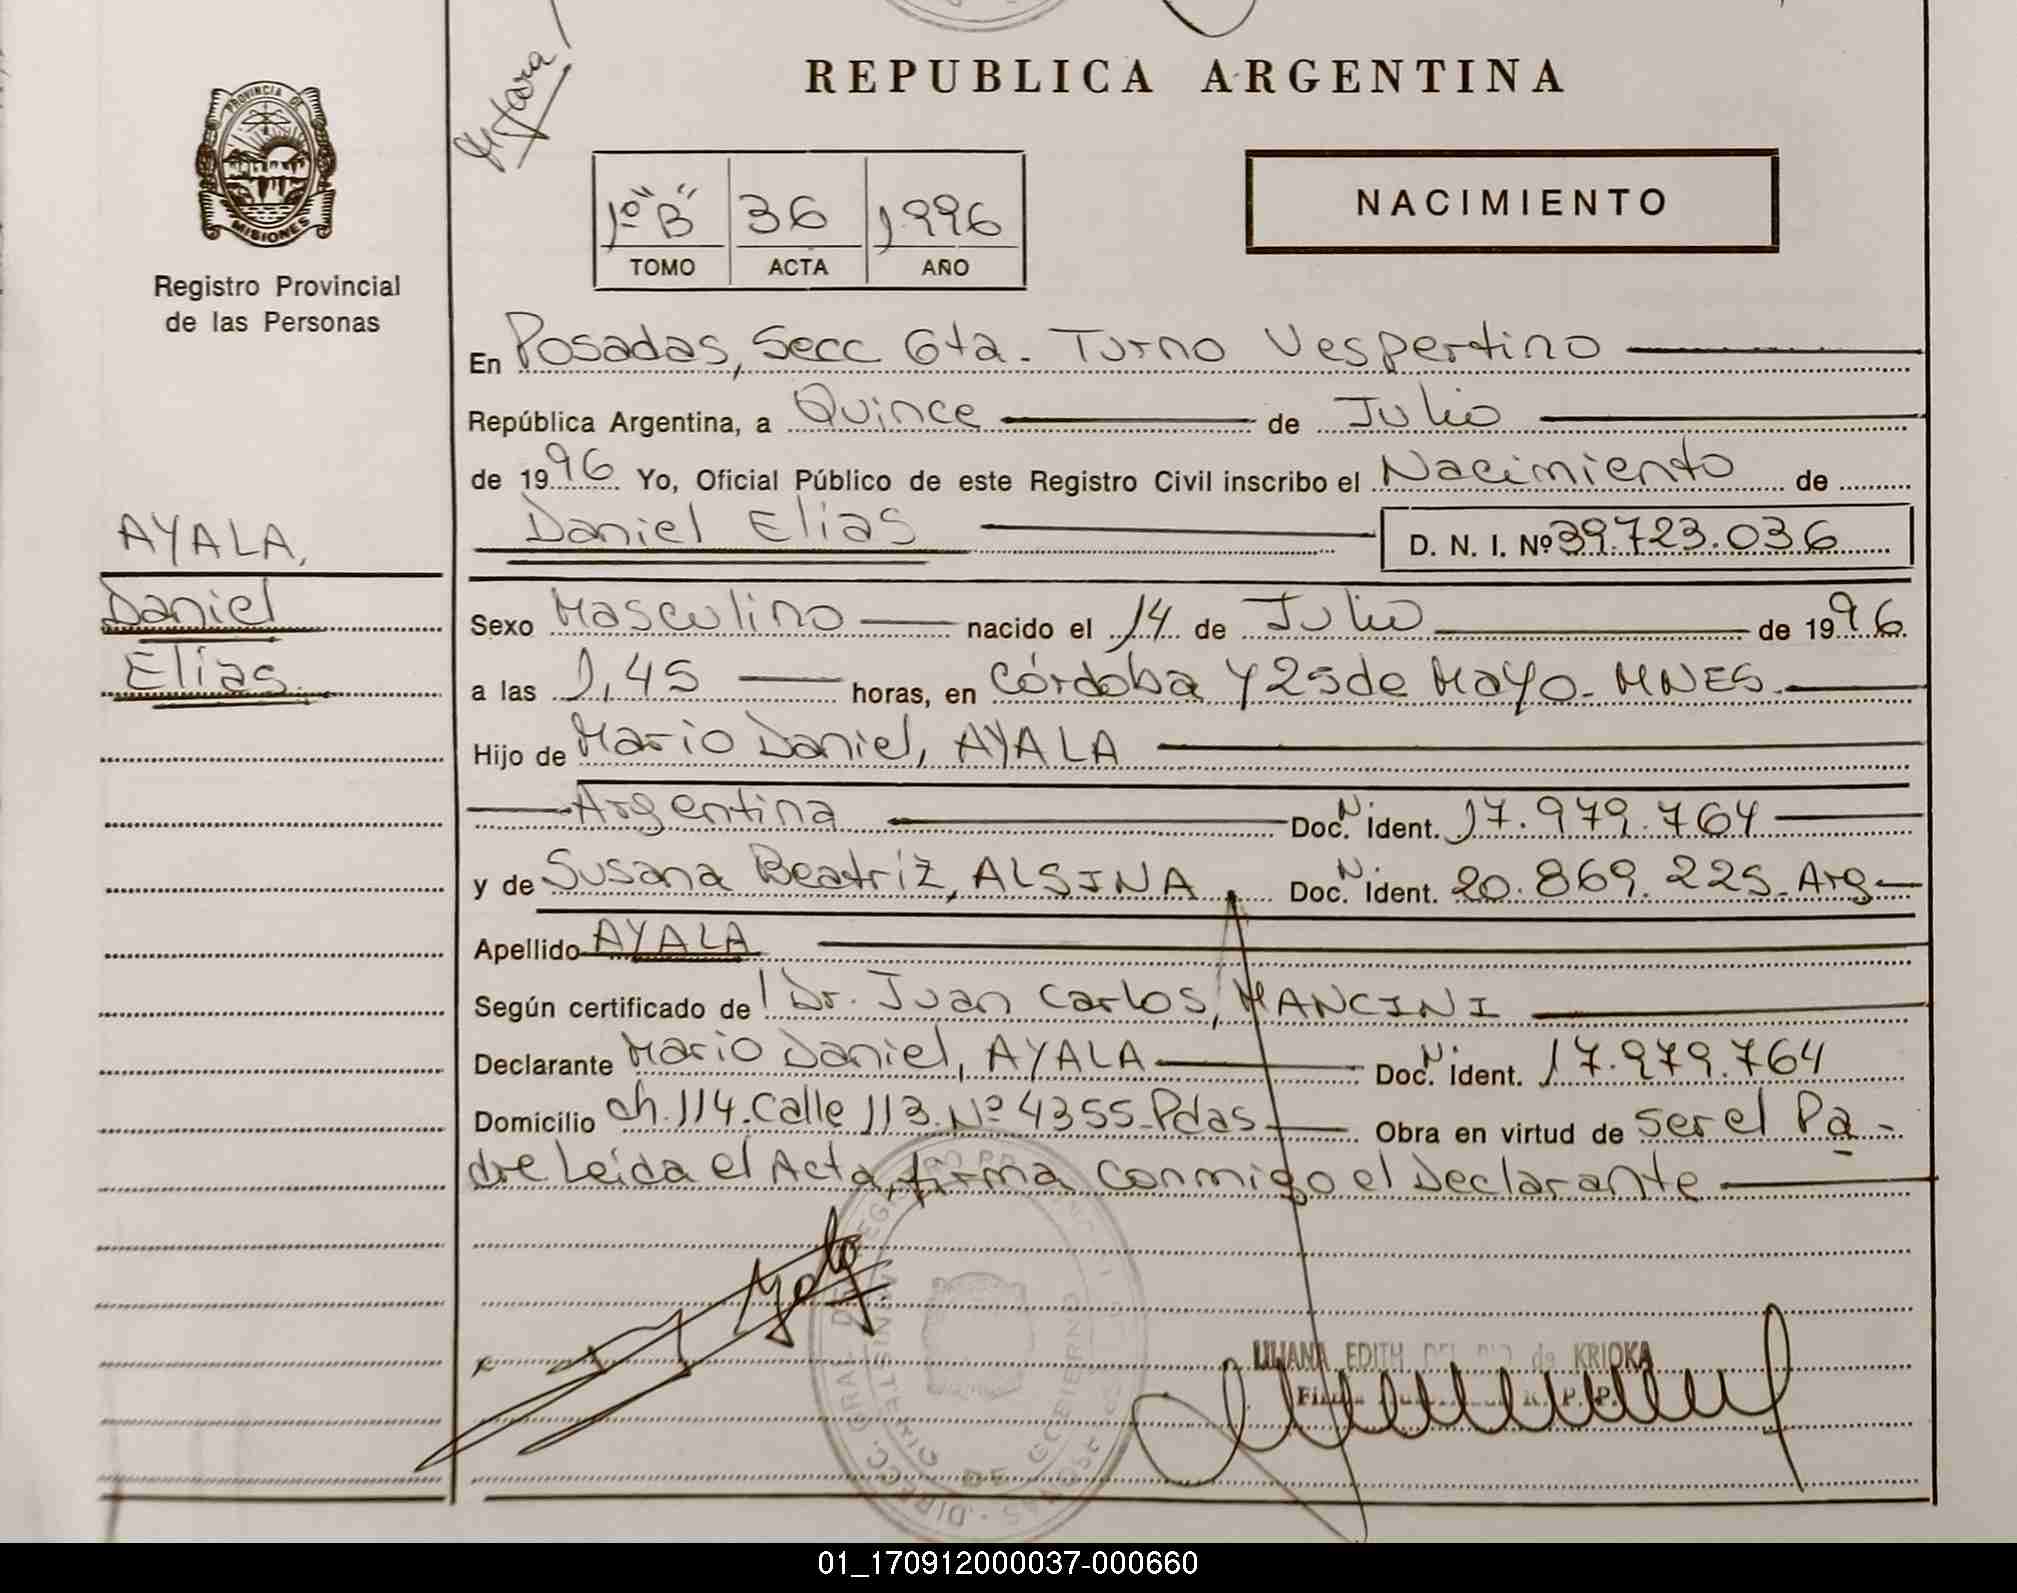 REPUBLICA ARGENTINA
PROVINCIA DE
MISIONES
Registro Provincial
de las Personas
1º "B" 36 1996
TOMO ACTA AÑO
NACIMIENTO
En Posadas, Secc 6ta. Turno Vespertino
República Argentina, a Quince de Julio
de 1996 Yo, Oficial Público de este Registro Civil inscribo el Nacimiento de
Daniel Elias D. N. I. Nº 39.723.036
AYALA,
Daniel
Elias
Sexo Masculino nacido el 14 de Julio de 1996
a las 1,45 horas, en Córdoba y 25 de Mayo. MNES.
Hijo de Mario Daniel, AYALA
Argentina Doc. N. Ident. 17.979.764
y de Susana Beatriz, ALSINA. Doc. N. Ident. 20.869.225. Arg
Apellido AYALA
Según certificado de Dr. Juan Carlos, MANCINI
Declarante Mario Daniel, AYALA Doc. N. Ident. 17.979.764
Domicilio ch. 114. Calle 113. Nº 4355. Pdas Obra en virtud de ser el Pa-
dre Leída el Acta, firma conmigo el Declarante
LILIANA EDITH DEL de KRIOKA
01_170912000037-000660